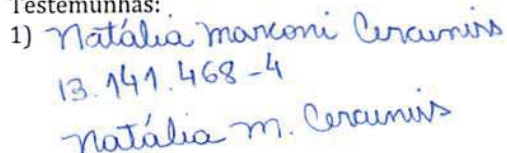 Testemunhas:
1) Natália Marconi Cercunvis
13.141.468-4
Natália M. Cercunvis